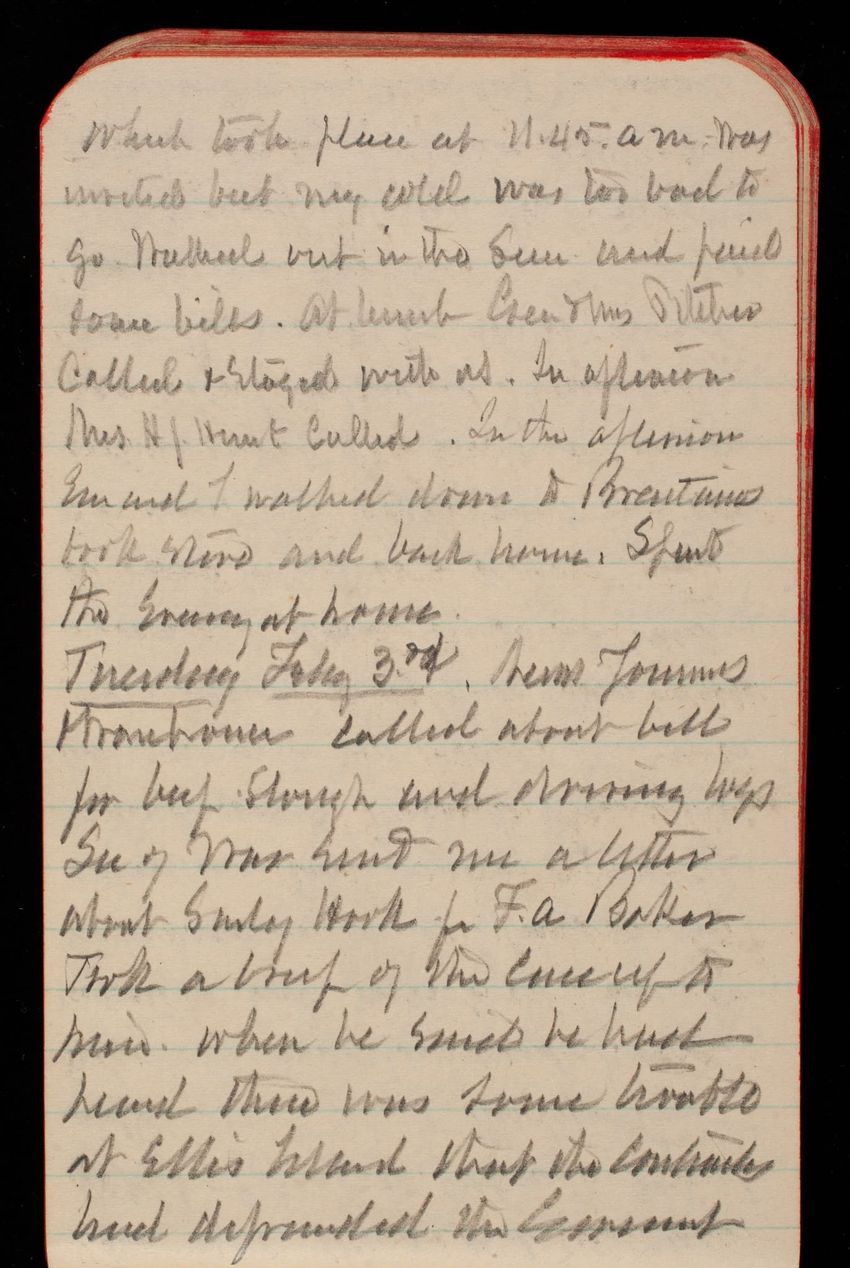 which took place at 11.45. a m. Was
invited but my cold was too bad to
go. Walked out in the Sun and paid
some bills. At lunch Gen & Mrs
Called & Stayed with us. In afternoon
Mrs H J Hunt Called. In the afternoon
Em and I walked down to Brentanos
book store and back home. Spent
the Evening at home.
Tuesday Feby 3rd.
called about bill
for beef Slough and driving logs
Sec of War sent me a letter
about Sandy Hook for F. A Baker
Took a brief of the Case up to
him. when he said he had
heard there was some trouble
at Ellis Island that the Contractors
had defrauded the Goverment